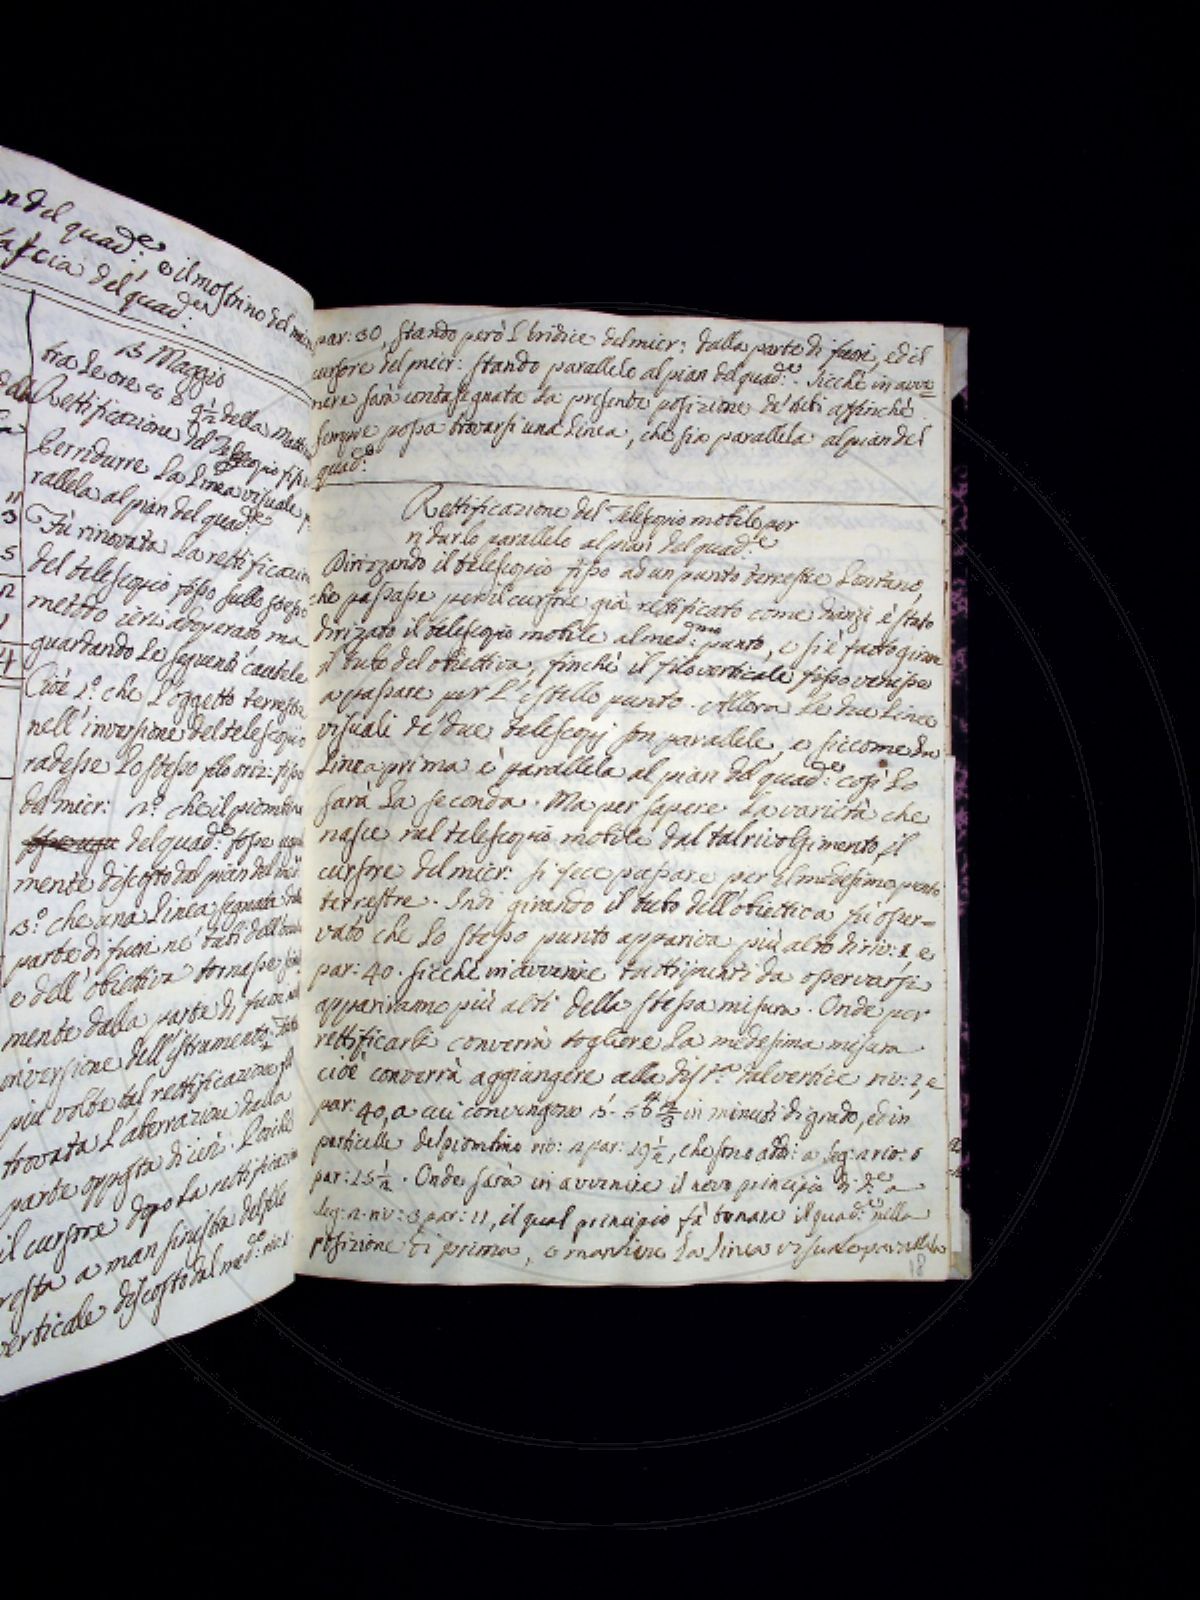 n del quad.e e il mostrino del mic
fascia del quad.e
13 Maggio
tra le ore 8 e 9 1/2 della Matti
Rettificazione del Telescopio fisso
per ridurre la Linea visuale p
rallela al pian del quad.e
Fù rinovata la rettificazio
del telescopio fisso sullo stesso
metodo ieri adoperato ma
guardando le seguenti cautele
Cioè 1.o che l'oggetto terrestre
nell'inversione del telescopio
radesse lo stesso filo oriz: fisso
del micr: 2.o che il piombino
del quad.e fosse
mente discosto dal pian del
3.o che una Linea segnata dalla
parte di fuori ne' tubi dell'
e dell'obiettiva tornasse
mente dalla parte di fuori nell'
inversione dell'istrumento.
più volte tal rettificazione fù
trovata l'aberrazione dalla
parte opposta di ieri. Poiché
il cursore dopo la rettificazion
resta a man sinistra del filo
verticale discosto dal med.o riv:
par: 30, stando però l'Indice del micr: dalla parte di fuori, ed il
cursore del micr: stando parallelo al pian del quad.e. Sicche in avve=
nire sarà contrasegnata la presente posizione de' tubi affinchè
sempre possa trovarsi una Linea, che sia parallela al pian del
quad.e
Rettificazione del Telescopio mobile per
ridurlo parallelo al pian del quad.e
Dirizzando il telescopio fisso ad un punto terrestre Lontano,
che passasse per il cursore già rettificato come dianzi è stato
dirizato il telescopio mobile al med.mo punto, e si è fatto girare
il tubo del obiettiva, finchè il filo verticale fisso venisse
a passare per l'istesso punto. Allora le due Linee
visuali de' due telescopj son parallele, e siccome la
Linea prima è parallela al pian del quad.e così lo
sarà la seconda. Ma per sapere la varietà che
nasce nel telescopio mobile dal tal rivolgimento, il
cursore del micr: si fece passare per il medesimo punto
terrestre. Indi girando il tubo dell'obiettiva fù osser=
vato che lo stesso punto appariva più alto di riv: 2, e
par: 40. Sicchè in avvenire tutti i punti da osservarsi
appariranno più alti della stessa misura. Onde per
rettificarli converrà togliere la medesima misura
cioè converrà aggiungere alla dis.za dal vertice riv: 2, e
par: 40, a cui convengono 3'. 56" 2/3 in minuti di grado, ed in
particelle del piombino riv: 2 par: 29 1/2, che sono
par: 25 1/2. Onde sarà in avvenire il novo principio di
seg: 2 riv: 3 par: 11, il qual principio fà tornare il quad.e nella
posizione di prima, e mantiene la Linea visuale parallela
18